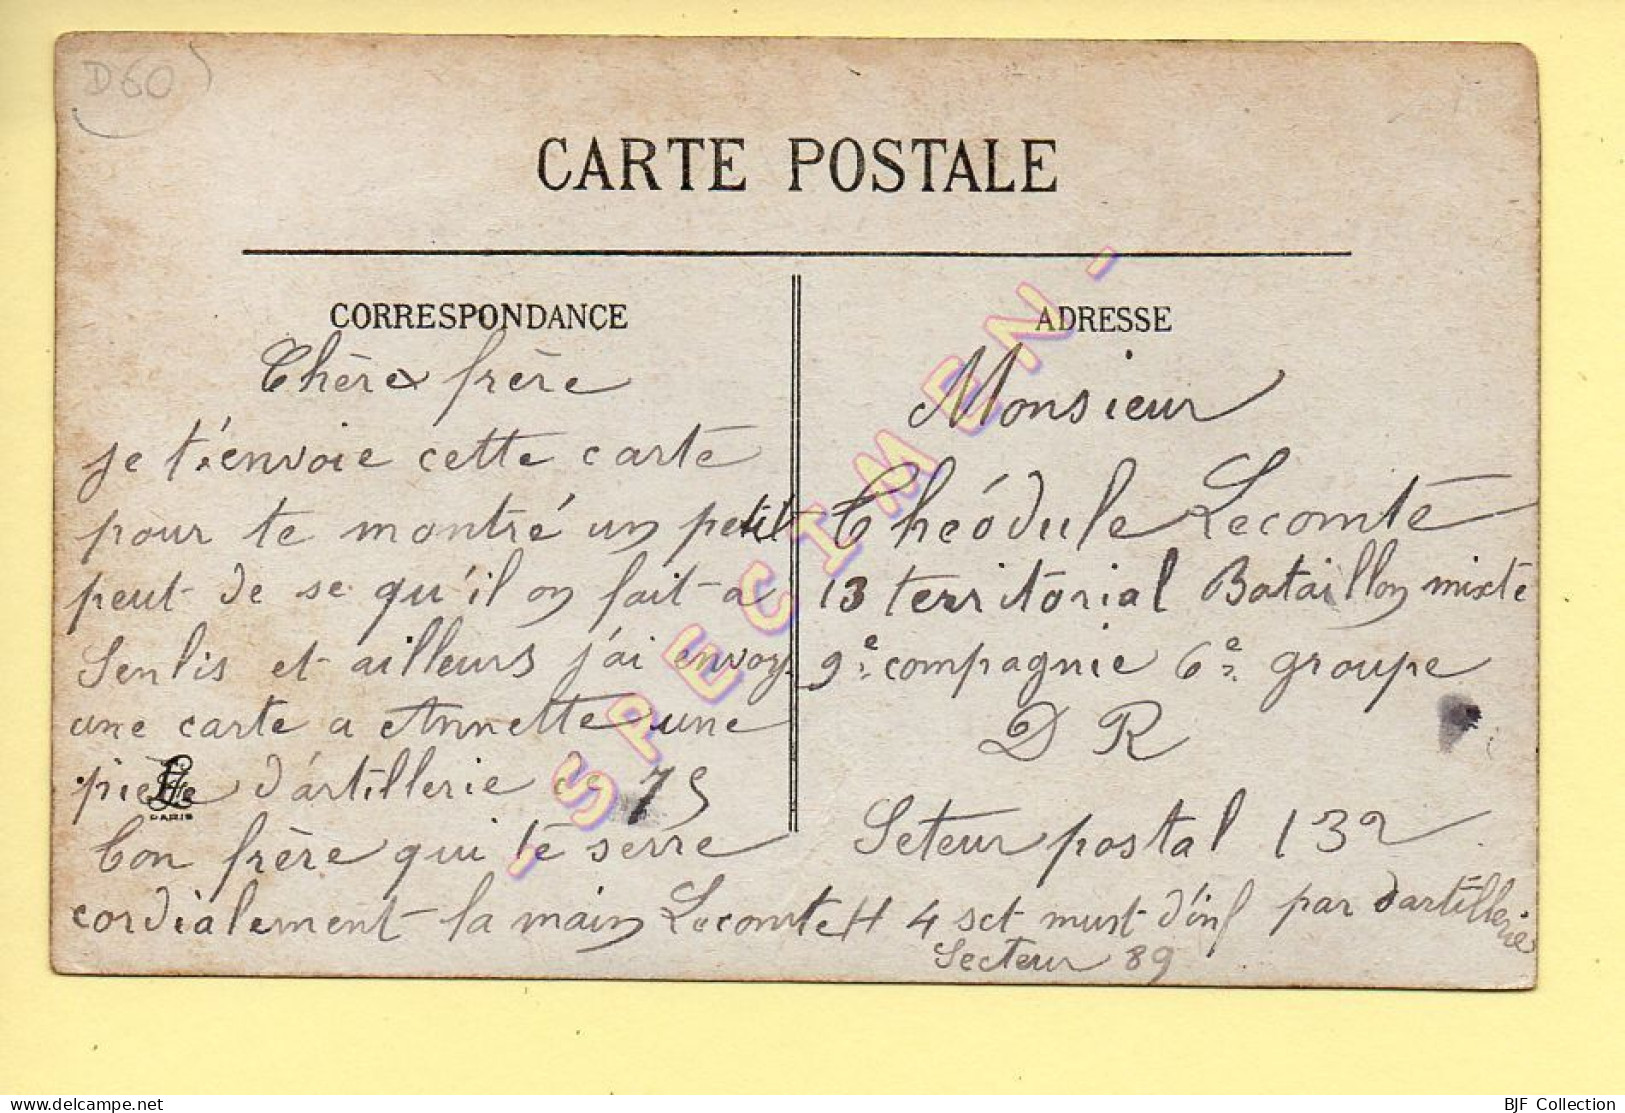 D60
CARTE POSTALE
CORRESPONDANCE
Chère frère
je t'envoie cette carte
pour te montré un petit
peut de se qu'il on fait a
Senlis et ailleurs j'ai envoy
une carte a Annette une
pie d'artillerie de 75
PARIS
Ton frère qui te serre
cordialement la main Lecomte H
4 sct must d'inf par d'artillerie
Secteur 89
ADRESSE
Monsieur
Théodule Lecomte
13 territorial Bataillon mixte
9e compagnie 6e groupe
D R
Seteur postal 132
- SPECIMEN -
delcampe.net
BJF Collection